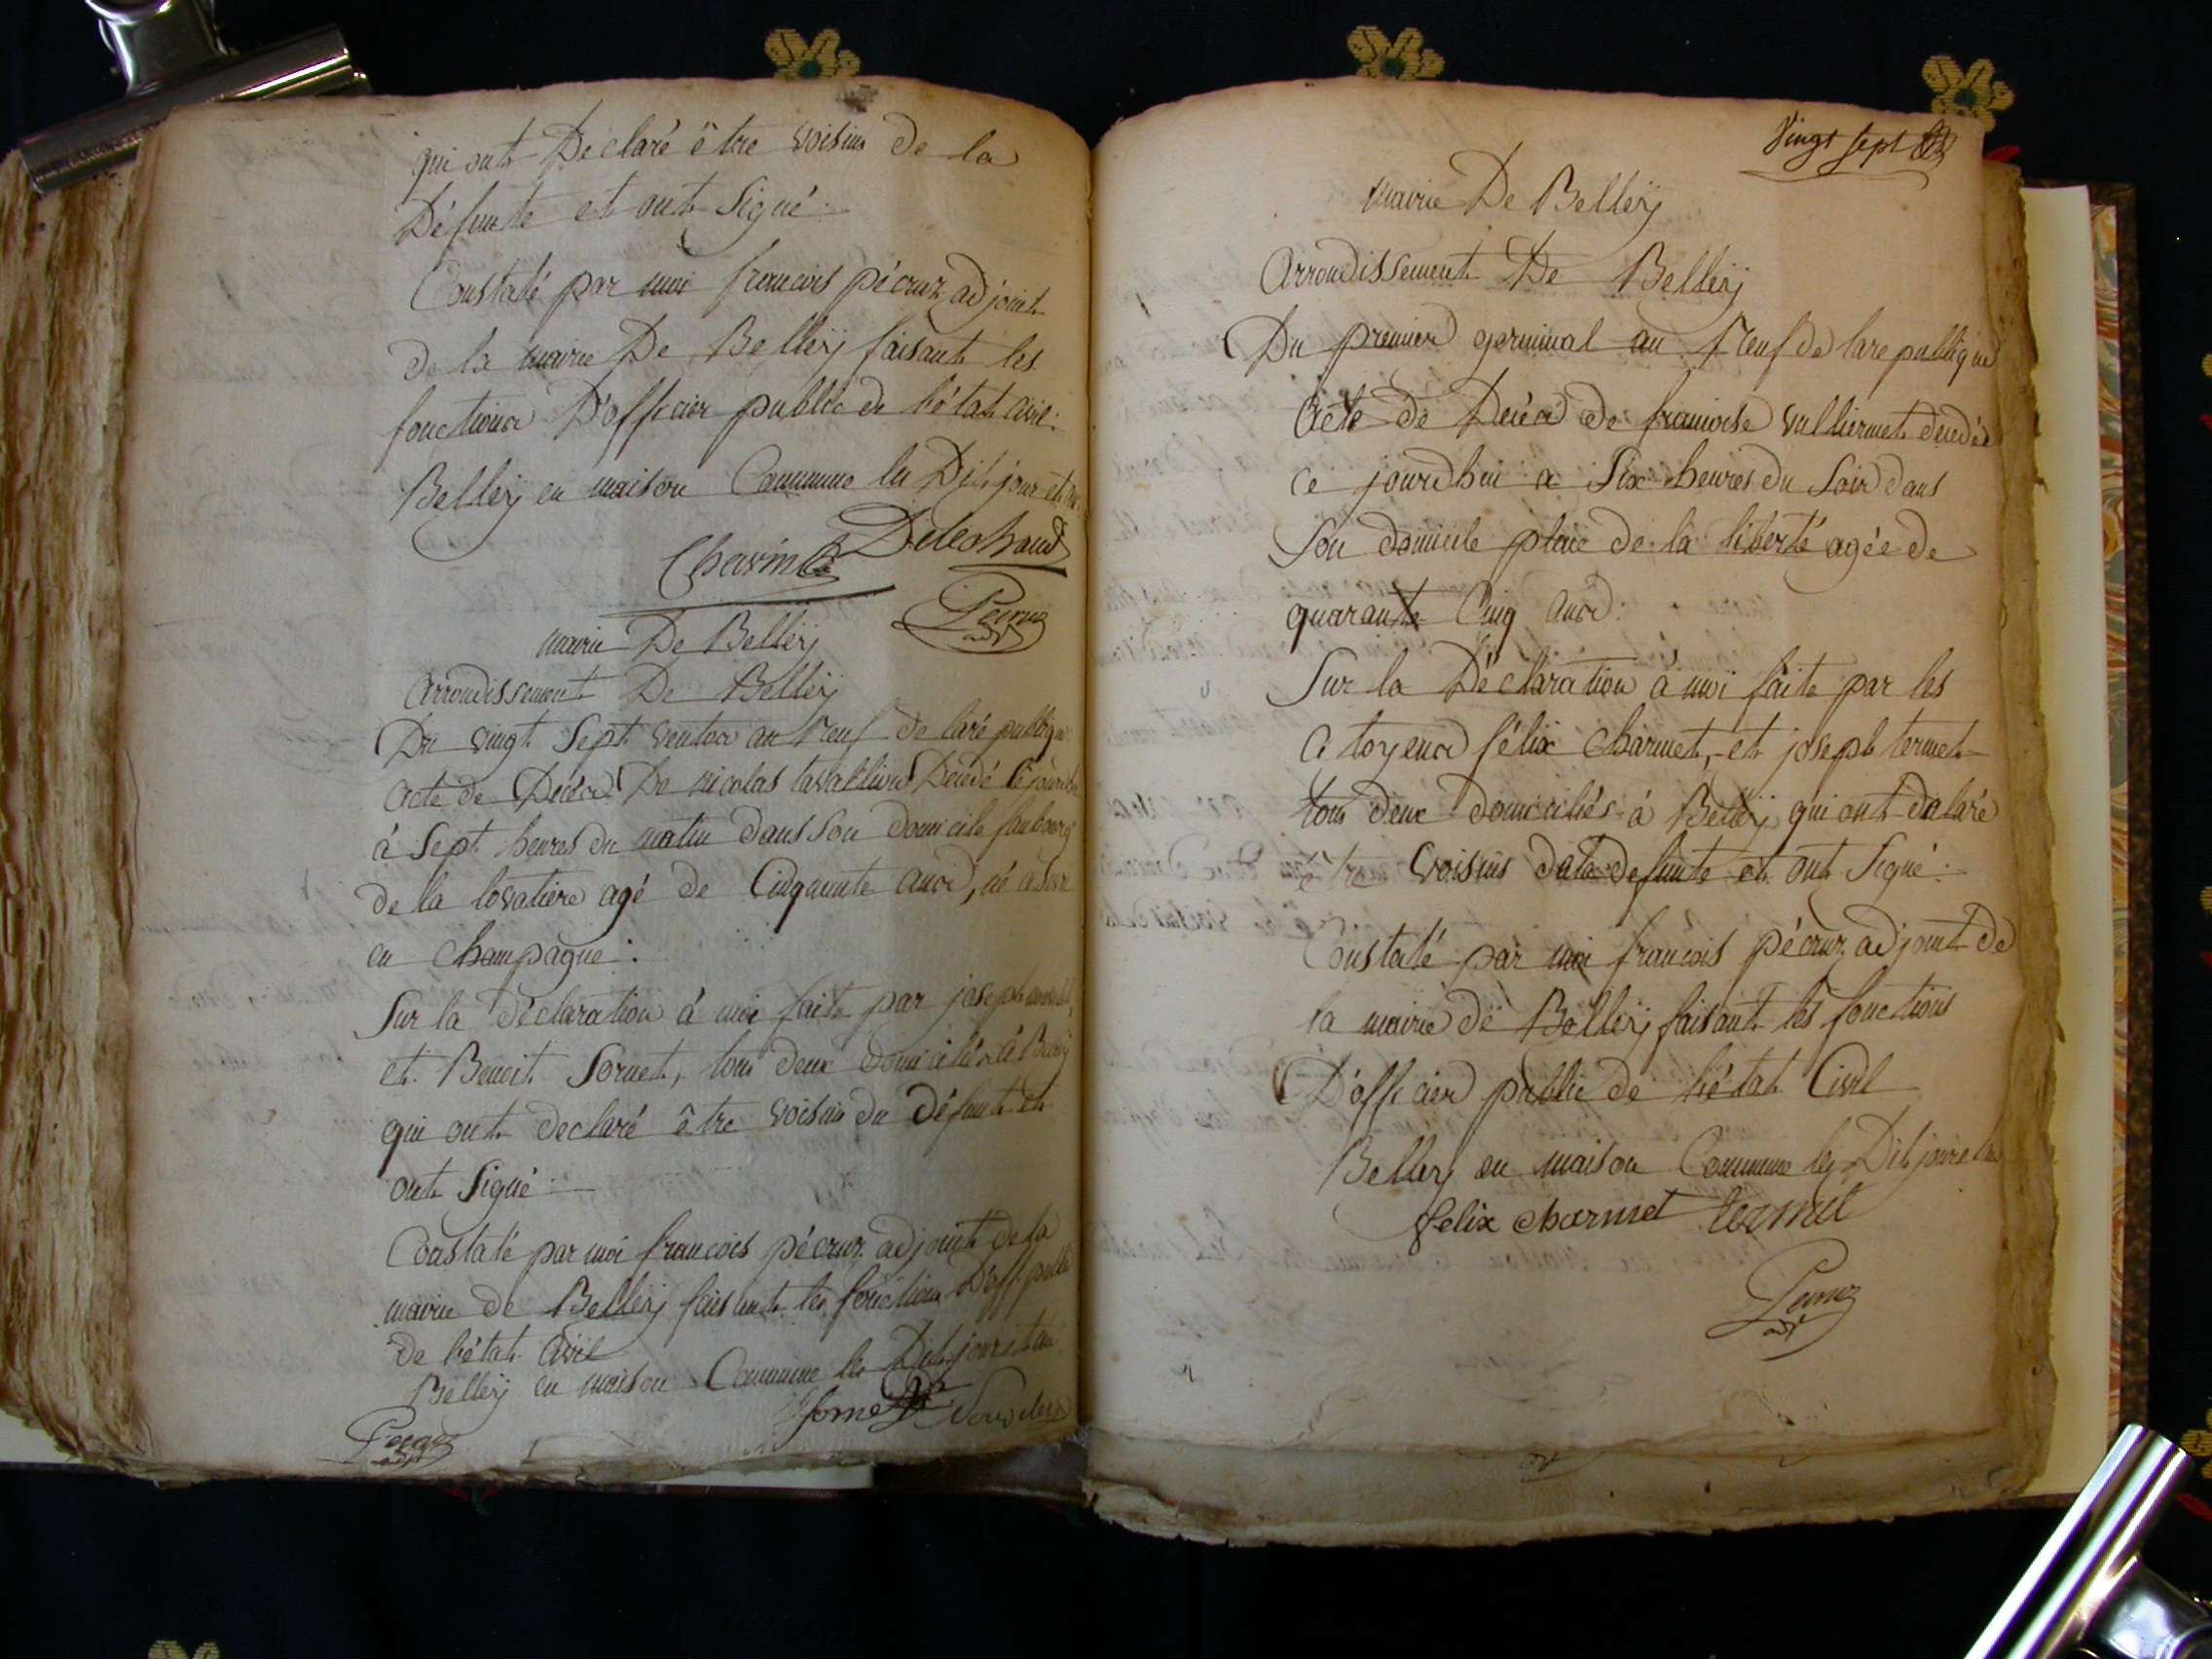 qui ont Déclaré être voisins de la
Défunte et ont Signé.
Constaté par moi françois pécruz adjoint
de la mairie De Belleÿ faisant les
fonctions D'officier public de l'état civil.
Belleÿ en maison Commune les Dit jour et an.
Charin Delechaud
Pecruz adjt
mairie De Belleÿ
arrondissement De Belleÿ
Du vingt Sept ventos an neuf de la république
acte de Décès De nicolas Décédé ce jourdhui
à Sept heures du matin dans Son domicile faubourg
de la agé de Cinquante ans, né à
en Champagne.
Sur la déclaration à moi faite par joseph
et Benoit Sornet, tous deux domiciliés à
qui ont declaré être voisin du Défunt et
ont Signé
Constaté par moi françois pécruz adjoint de la
mairie de Belleÿ faisant les fonctions D'off. public
de l'état civil
Belleÿ en maison Commune les Dit jour et an
Sornet
Pecruz adjt
Vingt Sept
mairie De Belleÿ
arrondissement De Belleÿ
Du premier germinal an neuf de la republique
acte de Décès de francoise vulliermet decedée
ce jourdhui a Six heures du Soir dans
Son domicile place de la liberté agée de
quarante Cinq ans.
Sur la Déclaration à moi faite par les
Citoyens félix Charmet, et joseph termet
tous deux domiciliés à Belleÿ qui ont declaré
être voisins de la defunte et ont Signé.
Constaté par moi françois pécruz adjoint de
la mairie de Belleÿ faisant les fonctions
D'officier public de l'état Civil
Belleÿ en maison Commune les Dit jour et an
felix charmet termet
Pecruz adjt